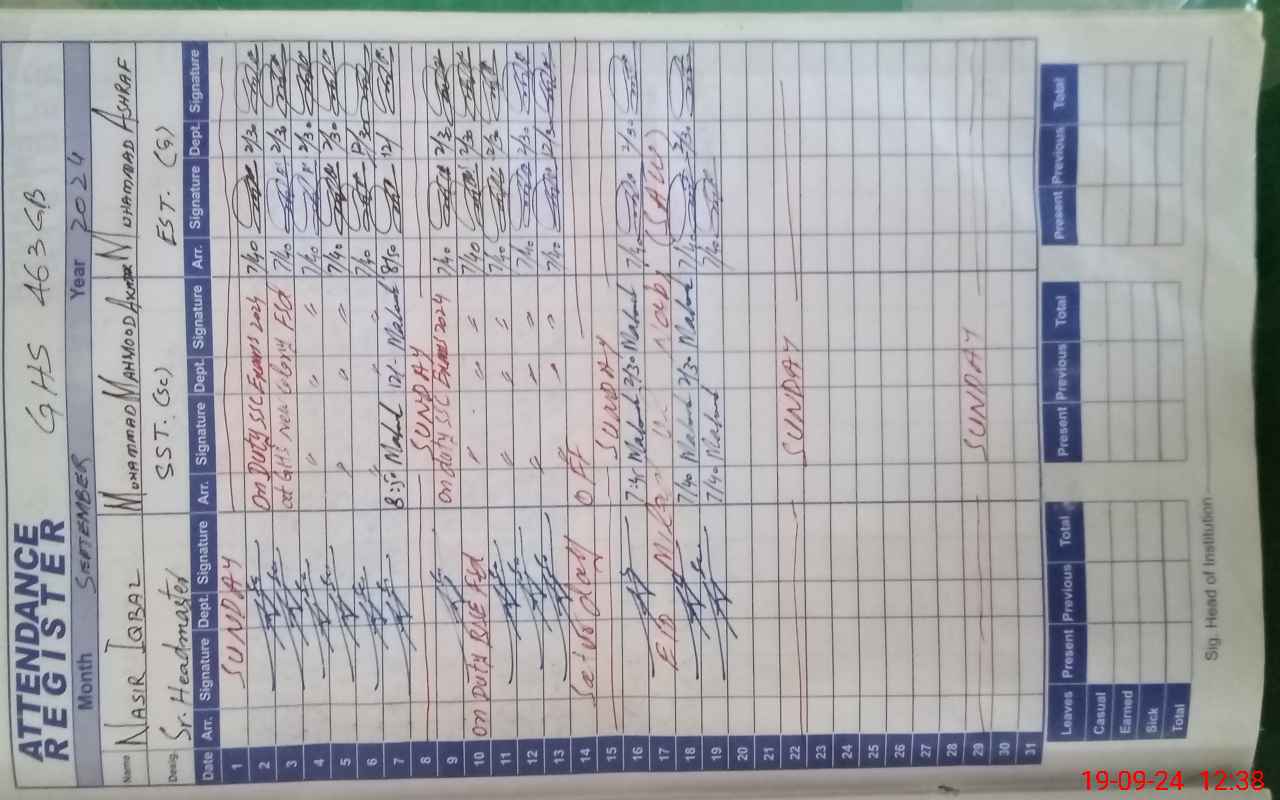 ATTENDANCE REGISTER
GHS 463 GB
Month SEPTEMBER Year 2024
Name NASIR IQBAL MUHAMMAD MAHMOOD MUHAMMAD ASHRAF
Desig. Sr. Headmaster SST. (Sc) EST. (G)
Date Arr. Signature Dept. Signature Arr. Signature Dept. Signature Arr. Signature Dept. Signature
1 SUNDAY
2 On Duty SSC Exams 2024 7/40 2/30
3 at GHS New Colony Fsd 7/40 2/30
4 " " " 7/40 2/30
5 " " " 7/40 2/30
6 " " " 7/40 12/30
7 8:50 12/- 8/50 12/
8 SUNDAY
9 on duty SSC Exams 2024 7/40 2/30
10 On Duty BISE Fsd " " " 7/40 2/30
11 " " " 7/40 2/30
12 " " " 7/40 2/30
13 " " " 7/40 12/30
14 Saturday Off
15 SUNDAY
16 7:40 2/30 7/40 2/30
17 EID Milad un Nabi (SAW)
18 7/40 2/30 7/40 2/30
19 7/40 7/40
20
21
22 SUNDAY
23
24
25
26
27
28
29 SUNDAY
30
31
Leaves Present Previous Total Present Previous Total Present Previous Total
Casual
Earned
Sick
Total
Sig. Head of Institution
19-09-24 12:38